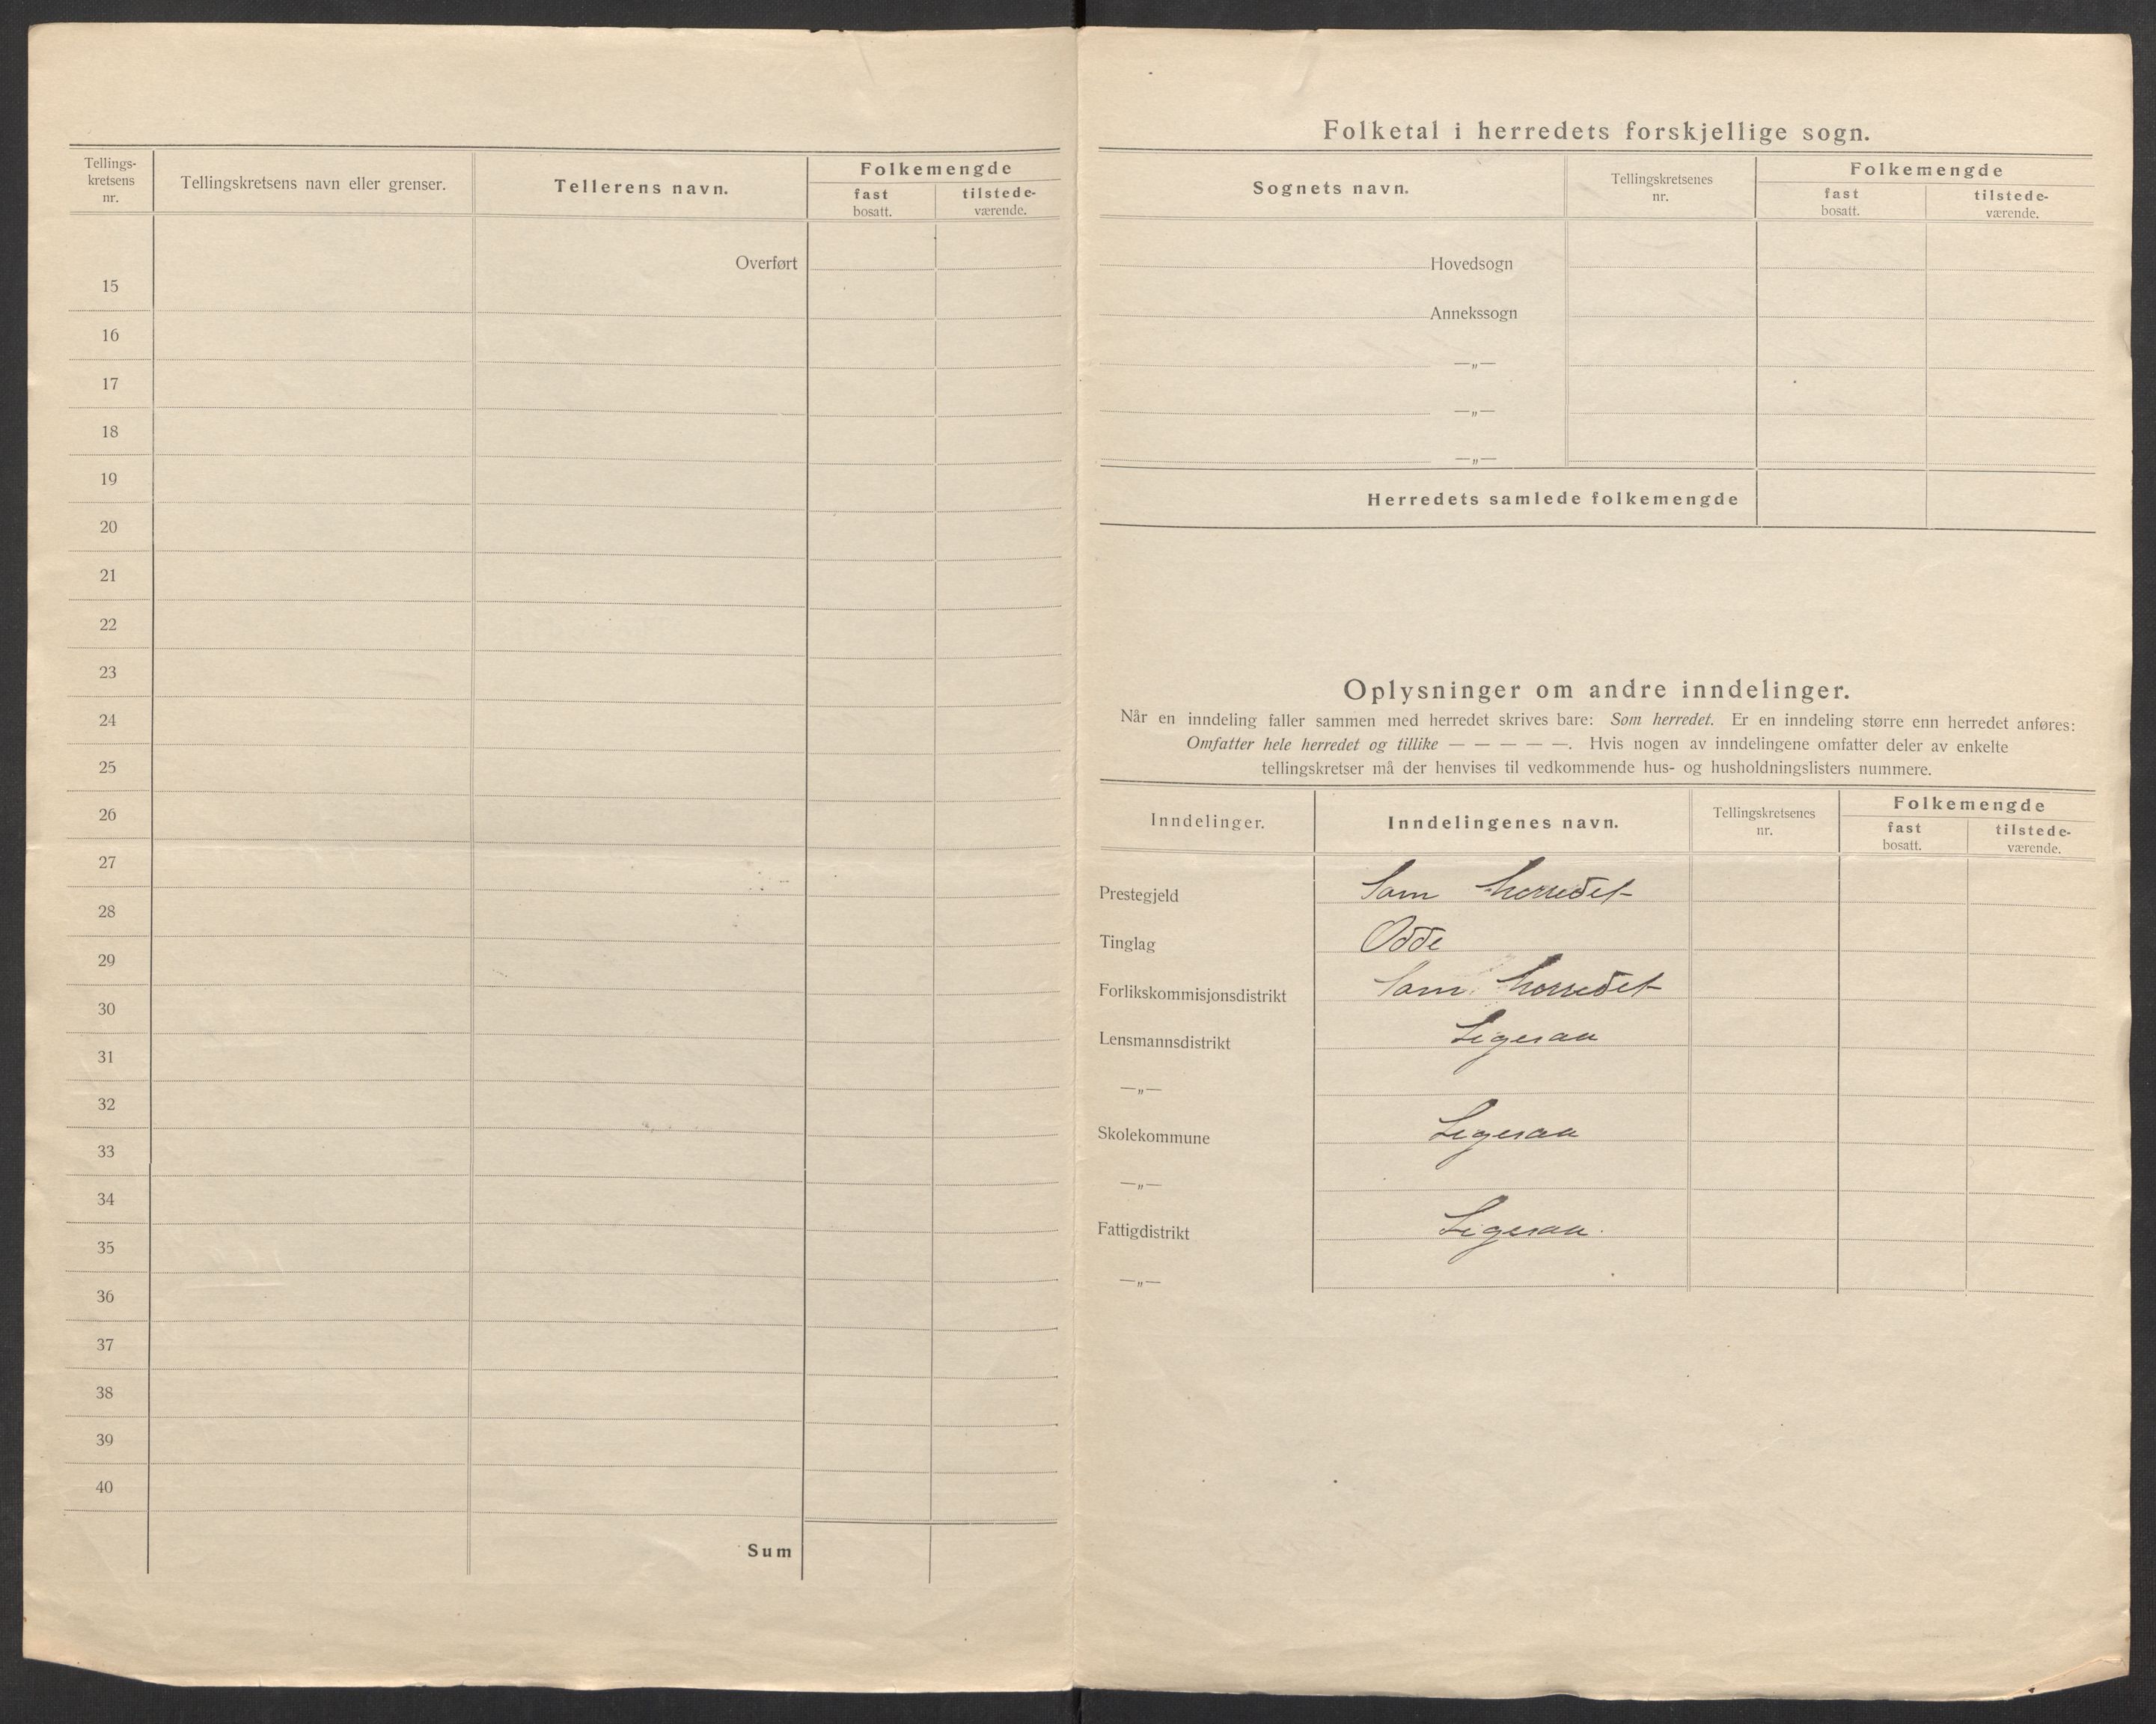 Tellings-
kretsens
nr.
Tellingskretsens navn eller grenser.
Tellerens navn.
Folkemengde
fast
bosatt.
tilstede-
værende.
Overført
15
16
17
18
19
20
21
22
23
24
25
26
27
28
29
30
31
32
33
34
35
36
37
38
39
40
Sum
Folketal i herredets forskjellige sogn.
Sognets navn.
Tellingskretsenes
nr.
Folkemengde
fast
bosatt.
tilstede-
værende.
Hovedsogn
Annekssogn
—„—
—„—
—„—
Herredets samlede folkemengde
Oplysninger om andre inndelinger.
Når en inndeling faller sammen med herredet skrives bare: Som herredet. Er en inndeling større enn herredet anføres:
Omfatter hele herredet og tillike — — — — —. Hvis nogen av inndelingene omfatter deler av enkelte
tellingskretser må der henvises til vedkommende hus- og husholdningslisters nummere.
Inndelinger.
Inndelingenes navn.
Tellingskretsenes
nr.
Folkemengde
fast
bosatt.
tilstede-
værende.
Prestegjeld Som herredet
Tinglag Odde
Forlikskommisjonsdistrikt Som herredet
Lensmannsdistrikt Ligesaa
—„—
Skolekommune Ligesaa
—„—
Fattigdistrikt Ligesaa.
—„—